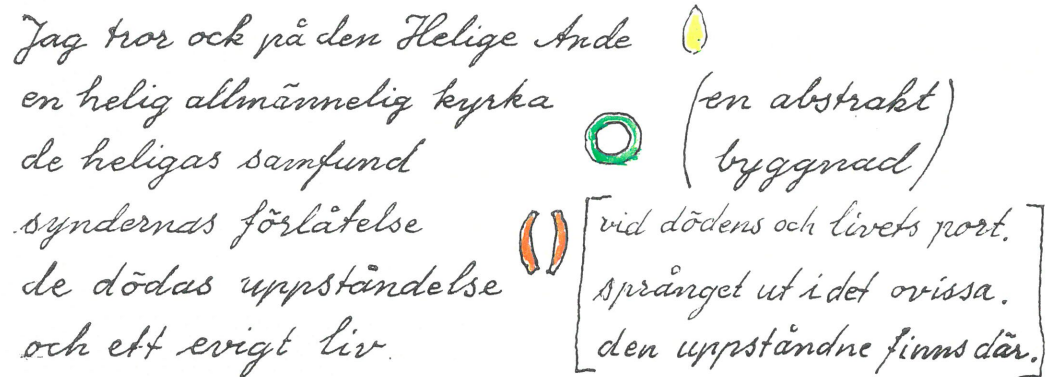 Jag tror ock på den Helige Ande
en helig allmännelig kyrka
de heligas samfund
(en abstrakt
byggnad)
syndernas förlåtelse
de dödas uppståndelse
och ett evigt liv.
[vid dödens och livets port.
språnget ut i det ovissa.
den uppståndne finns där.]